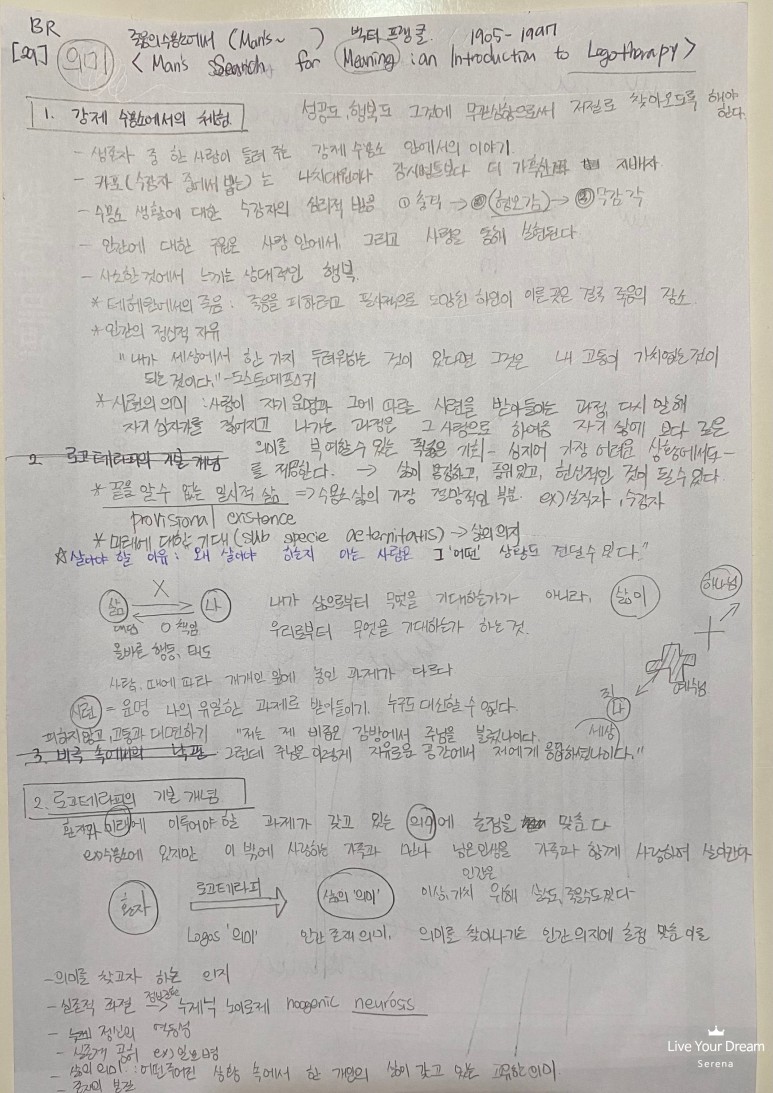 BR
죽음의 수용소에서 (Man's~ ) 빅터 프랭클. 1905-1997
[29] 의미 < Man's Search for Meaning : an Introduction to Logotherapy >
1. 강제 수용소에서의 체험
성공도, 행복도 그것에 무관심함으로써 저절로 찾아오도록 해야 한다.
- 생존자 중 한 사람이 들려 주는 강제 수용소 안에서의 이야기.
- 카포(수감자 중에서 뽑는)는 나치대원이나 감시병들보다 더 가혹한 지배자
- 수용소 생활에 대한 수감자의 심리적 반응 ① 충격 → ② (혐오감) → ③ 무감각
- 인간에 대한 구원은 사랑 안에서, 그리고 사랑을 통해 실현된다.
- 사소한 것에서 느끼는 상대적인 행복.
* 테헤란에서의 죽음 : 죽음을 피하려고 필사적으로 도망친 하인이 이른 곳은 결국 죽음의 장소.
* 인간의 정신적 자유
"내가 세상에서 한 가지 두려워하는 것이 있다면 그것은 내 고통이 가치없는 것이
되는 것이다." - 도스토예프스키
* 시련의 의미 : 사람이 자기 운명과 그에 따르는 시련을 받아들이는 과정, 다시 말해
자기 십자가를 짊어지고 나가는 과정은 그 사람으로 하여금 자기 삶에 보다 깊은
2. 로고테라피의 기본 개념 의미를 부여할 수 있는 폭넓은 기회 - 심지어 가장 어려운 상황에서도 -
를 제공한다. → 삶이 용감하고, 품위있고, 헌신적인 것이 될 수 있다
* 끝을 알 수 없는 일시적 삶 => 수용소 삶의 가장 절망적인 부분. ex) 실직자, 수감자
provisional existence
* 미래에 대한 기대 (sub specie aeternitatis) → 삶의 의지
☆ 살아야 할 이유 : 왜 살아야 하는지 아는 사람은 그 '어떤' 상황도 견딜 수 있다."
삶 X 나
대답 O 책임
올바른 행동, 태도
내가 삶으로부터 무엇을 기대하는가가 아니라, 삶이
우리로부터 무엇을 기대하는가 하는 것.
하나님
예수님
나
세상
사람, 때에 따라 개개인 앞에 놓인 과제가 다르다
시련 = 운명 나의 유일한 과제로 받아들이기. 누구도 대신할 수 없다.
피하지않고, 고통과 대면하기 "저는 제 비좁은 감방에서 주님을 불렀나이다.
3. 비극 속에서의 낙관 그런데 주님은 이렇게 자유로운 공간에서 저에게 응답하셨나이다."
2. 로고테라피의 기본 개념
환자가 미래에 이루어야 할 과제가 갖고 있는 의미에 초점을 맞춘다
ex) 수용소에 있지만 이 밖에 사랑하는 가족과 만나 남은인생을 가족과 함께 사랑하며 살아간다
환자 로고테라피 삶의 '의미'
인간은
이상, 가치 위해 살도, 죽을수도 있다-
Logos '의미' 인간 존재 의미, 의미를 찾아나가는 인간 의지에 초점 맞춘 이론
- 의미를 찾고자 하는 의지
- 실존적 좌절 → 누제닉 노이로제 noogenic neurosis
- 정신의 역동성
- 실존적 공허 ex) 일요병
- 삶의 의미 : 어떤 주어진 상황 속에서 한 개인의 삶이 갖고 있는 고유한 의미.
- 존재의 본질
Live Your Dream
Serena